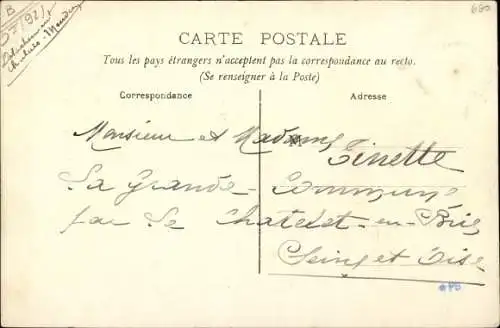 B
680
CARTE POSTALE
Tous les pays étrangers n'acceptent pas la correspondance au recto.
(Se renseigner à la Poste)
Correspondance Adresse
Monsieur et Madame Tinette
La Grande Commune
par Le Chatelet-en-Brie
Seine et Oise